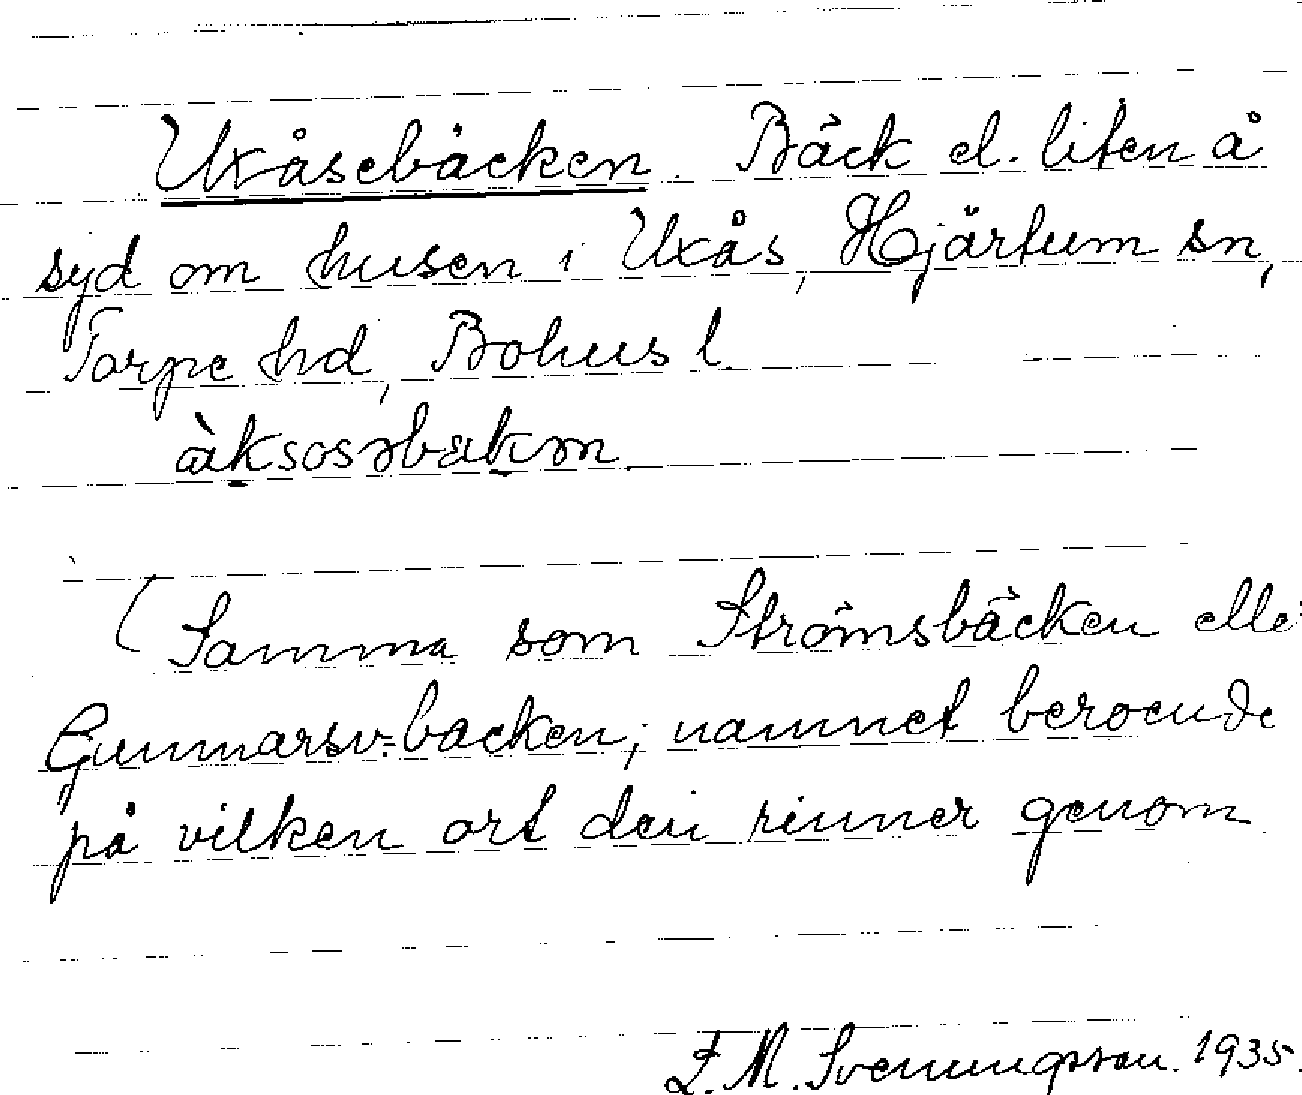 Uxåsebäcken. Bäck el. liten å
syd om husen i Uxås, Hjärtum sn,
Torpe hd, Bohus l.
(Samma som Strömsbäcken elle
Gunnarsv.-bäcken; namnet beroende
på vilken ort den rinner genom
E.M. Svenungsson. 1935.